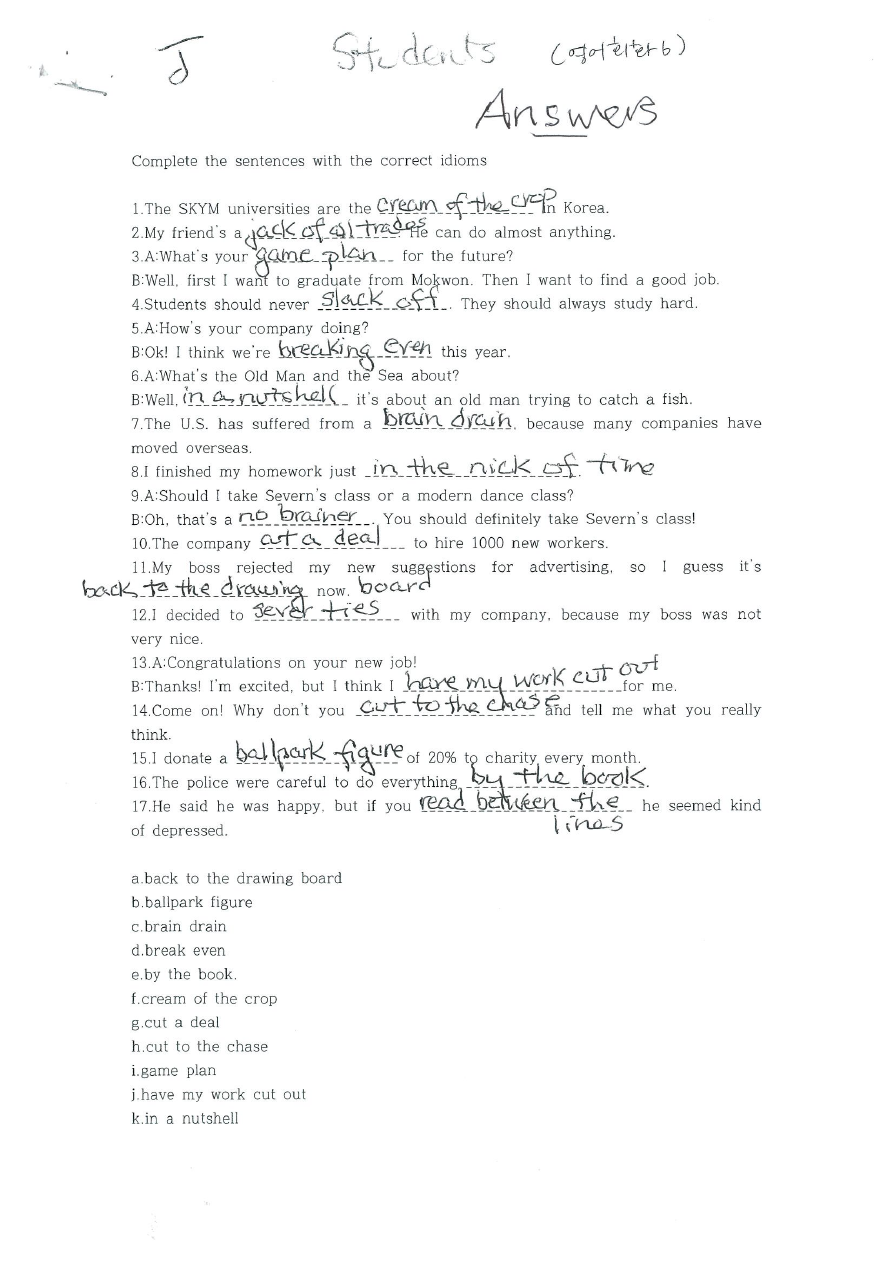 J Students (영어회화6)
Answers
Complete the sentences with the correct idioms
1.The SKYM universities are the cream of the crop in Korea.
2.My friend's a jack of all trades. He can do almost anything.
3.A:What's your game plan for the future?
B:Well, first I want to graduate from Mokwon. Then I want to find a good job.
4.Students should never slack off. They should always study hard.
5.A:How's your company doing?
B:Ok! I think we're breaking even this year.
6.A:What's the Old Man and the Sea about?
B:Well, in a nutshell it's about an old man trying to catch a fish.
7.The U.S. has suffered from a brain drain, because many companies have
moved overseas.
8.I finished my homework just in the nick of time
9.A:Should I take Severn's class or a modern dance class?
B:Oh, that's a no brainer. You should definitely take Severn's class!
10.The company cut a deal to hire 1000 new workers.
11.My boss rejected my new suggestions for advertising, so I guess it's
back to the drawing now. board
12.I decided to sever ties with my company, because my boss was not
very nice.
13.A:Congratulations on your new job!
B:Thanks! I'm excited, but I think I have my work cut out for me.
14.Come on! Why don't you cut to the chase and tell me what you really
think.
15.I donate a ballpark figure of 20% to charity every month.
16.The police were careful to do everything by the book.
17.He said he was happy, but if you read between the he seemed kind
lines
of depressed.
a.back to the drawing board
b.ballpark figure
c.brain drain
d.break even
e.by the book.
f.cream of the crop
g.cut a deal
h.cut to the chase
i.game plan
j.have my work cut out
k.in a nutshell